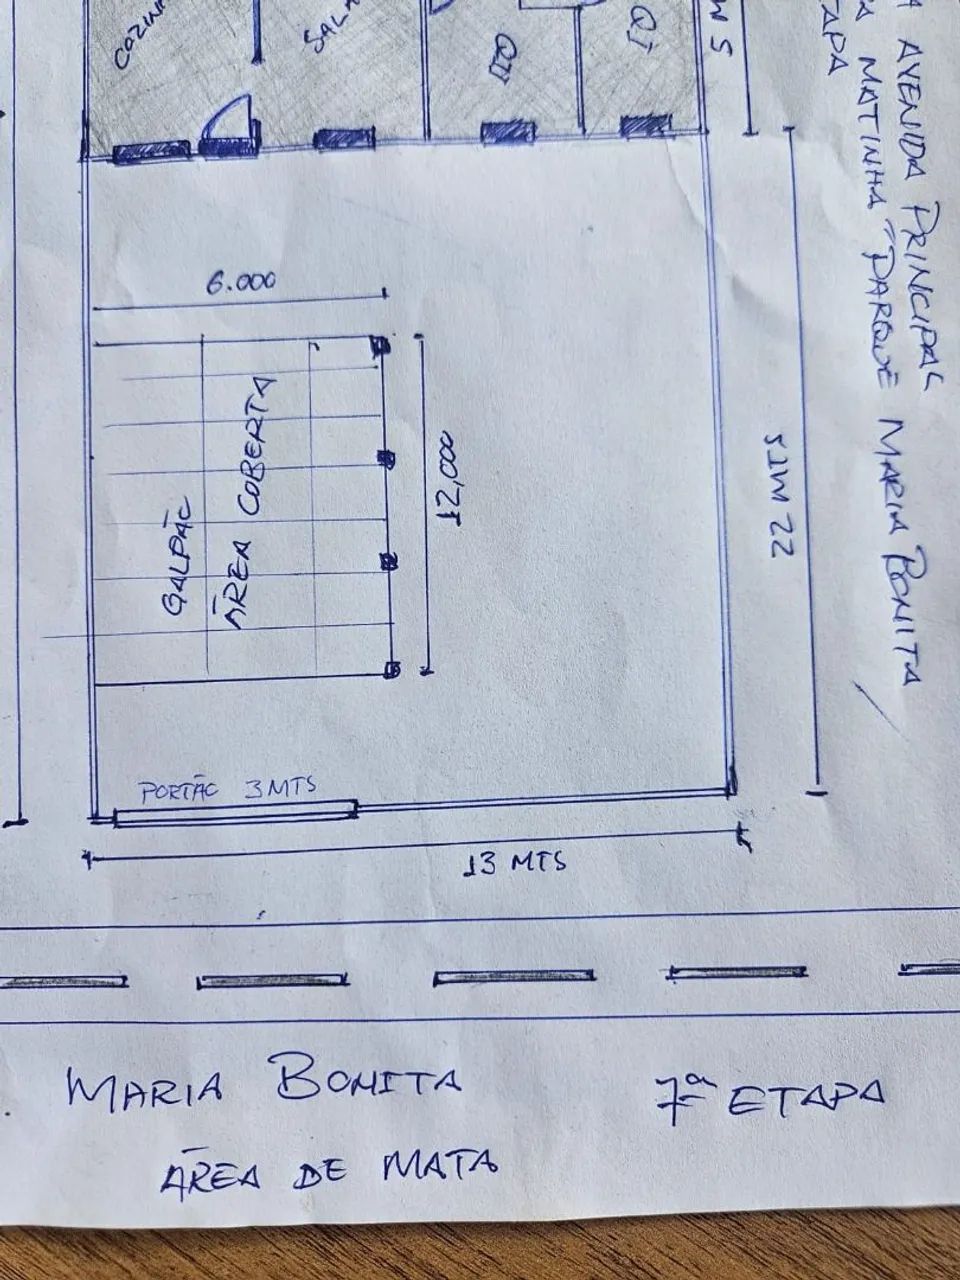 SALA
6.000
12,000
GALPÃO
ÁREA COBERTA
22 MTS
PORTÃO 3MTS
13 MTS
AVENIDA PRINCIPAL
MATINHA "PARQUE MARIA BONITA
MARIA BONITA
7ª ETAPA
ÁREA DE MATA